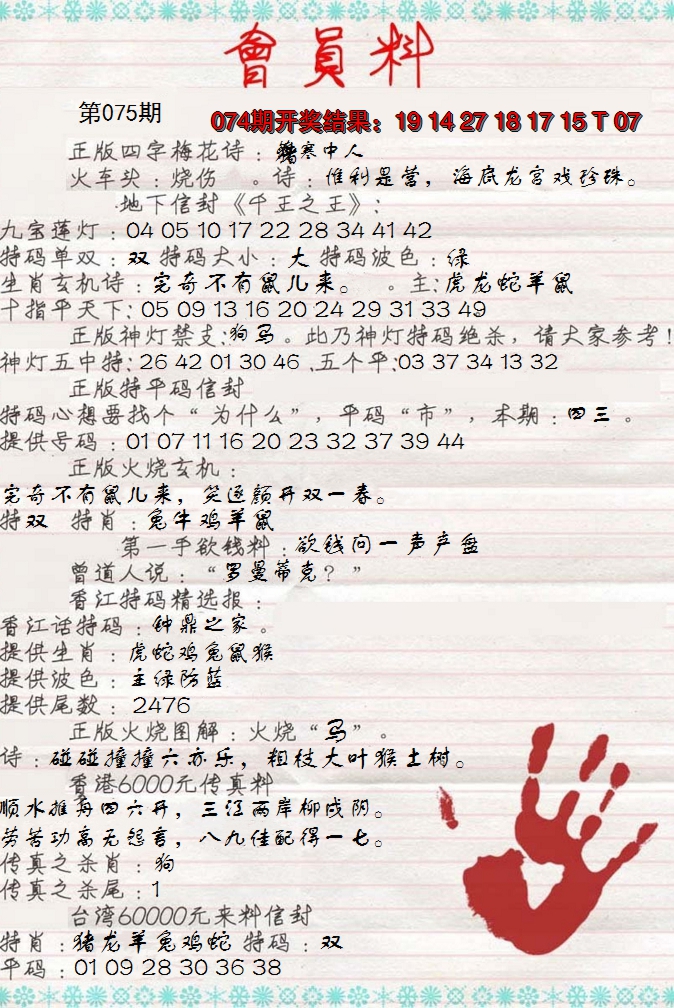 會員料
第075期
074期开奖结果：19 14 27 18 17 15 T 07
正版四字梅花诗：寒中人
火车头：烧伤 。诗：惟利是营，海底龙宫戏珍珠。
地下信封《千王之王》：
九宝莲灯：04 05 10 17 22 28 34 41 42
特码单双：双 特码大小：大 特码波色：绿
生肖玄机诗：宅奇不有鼠儿来。 。主:虎龙蛇羊鼠
十指平天下: 05 09 13 16 20 24 29 31 33 49
正版神灯禁支:狗马。此乃神灯特码绝杀，请大家参考!
神灯五中特: 26 42 01 30 46 .五个平:03 37 34 13 32
正版特平码信封
特码心想要找个“为什么”，平码“市”，本期：四三 。
提供号码：01 07 11 16 20 23 32 37 39 44
正版火烧玄机：
宅奇不有鼠儿来，笑逐颜开双一春。
特双 特肖：兔牛鸡羊鼠
第一手欲钱料：欲钱问一声产盘
曾道人说：“罗曼蒂克？”
香江特码精选报：
香江话特码：钟鼎之家 。
提供生肖：虎蛇鸡兔鼠猴
提供波色：主绿防蓝
提供尾数： 2476
正版火烧图解：火烧“马”。
诗：碰碰撞撞六亦乐，粗枝大叶猴土树。
香港6000元传真料
顺水推舟四六开，三江两岸柳成阴。
劳苦功高无怨言，八九佳配得一七。
传真之杀肖：狗
传真之杀尾：1
台湾60000元来料信封
特肖：猪龙羊兔鸡蛇 特码：双
平码：01 09 28 30 36 38